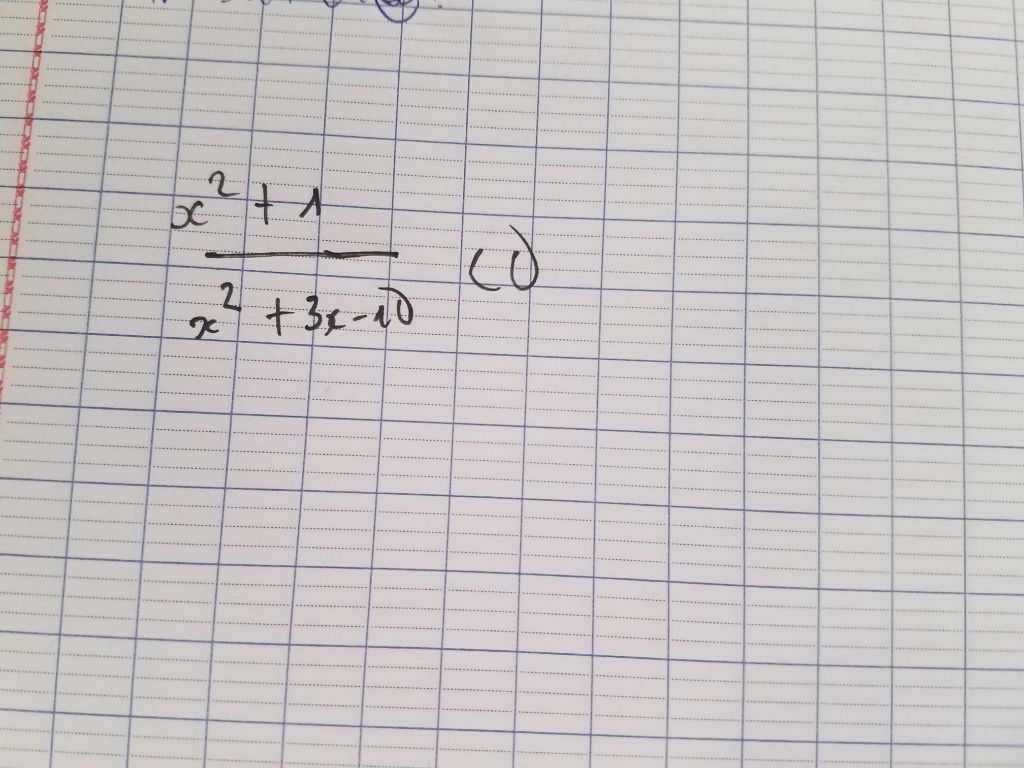 x² + 1
x² + 3x - 10 < 0